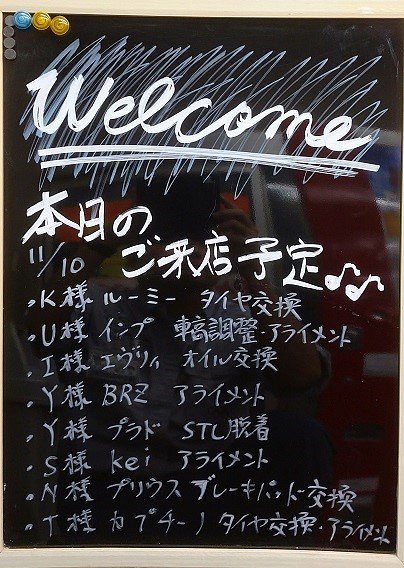 Welcome
本日の
11/10 ご来店予定♪♪
・K様 ルーミー タイヤ交換
・U様 インプ 車高調整・アライメント
・I様 エヴリィ オイル交換
・Y様 BRZ アライメント
・Y様 プラド STL脱着
・S様 kei アライメント
・N様 プリウス ブレーキパッド交換
・T様 カプチーノ タイヤ交換・アライメント